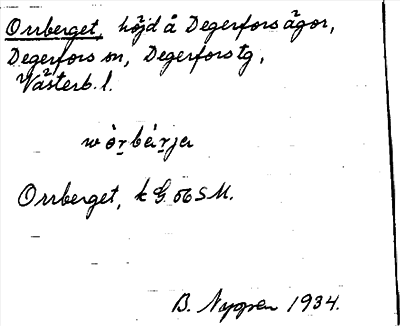 Orrberget, höjd å Degerfors ägor,
Degerfors sn, Degerfors tg,
Västerb. l.
wȯ̀rbǽrja
Orrberget, k G. 56 S M.
B. Nygren 1934.